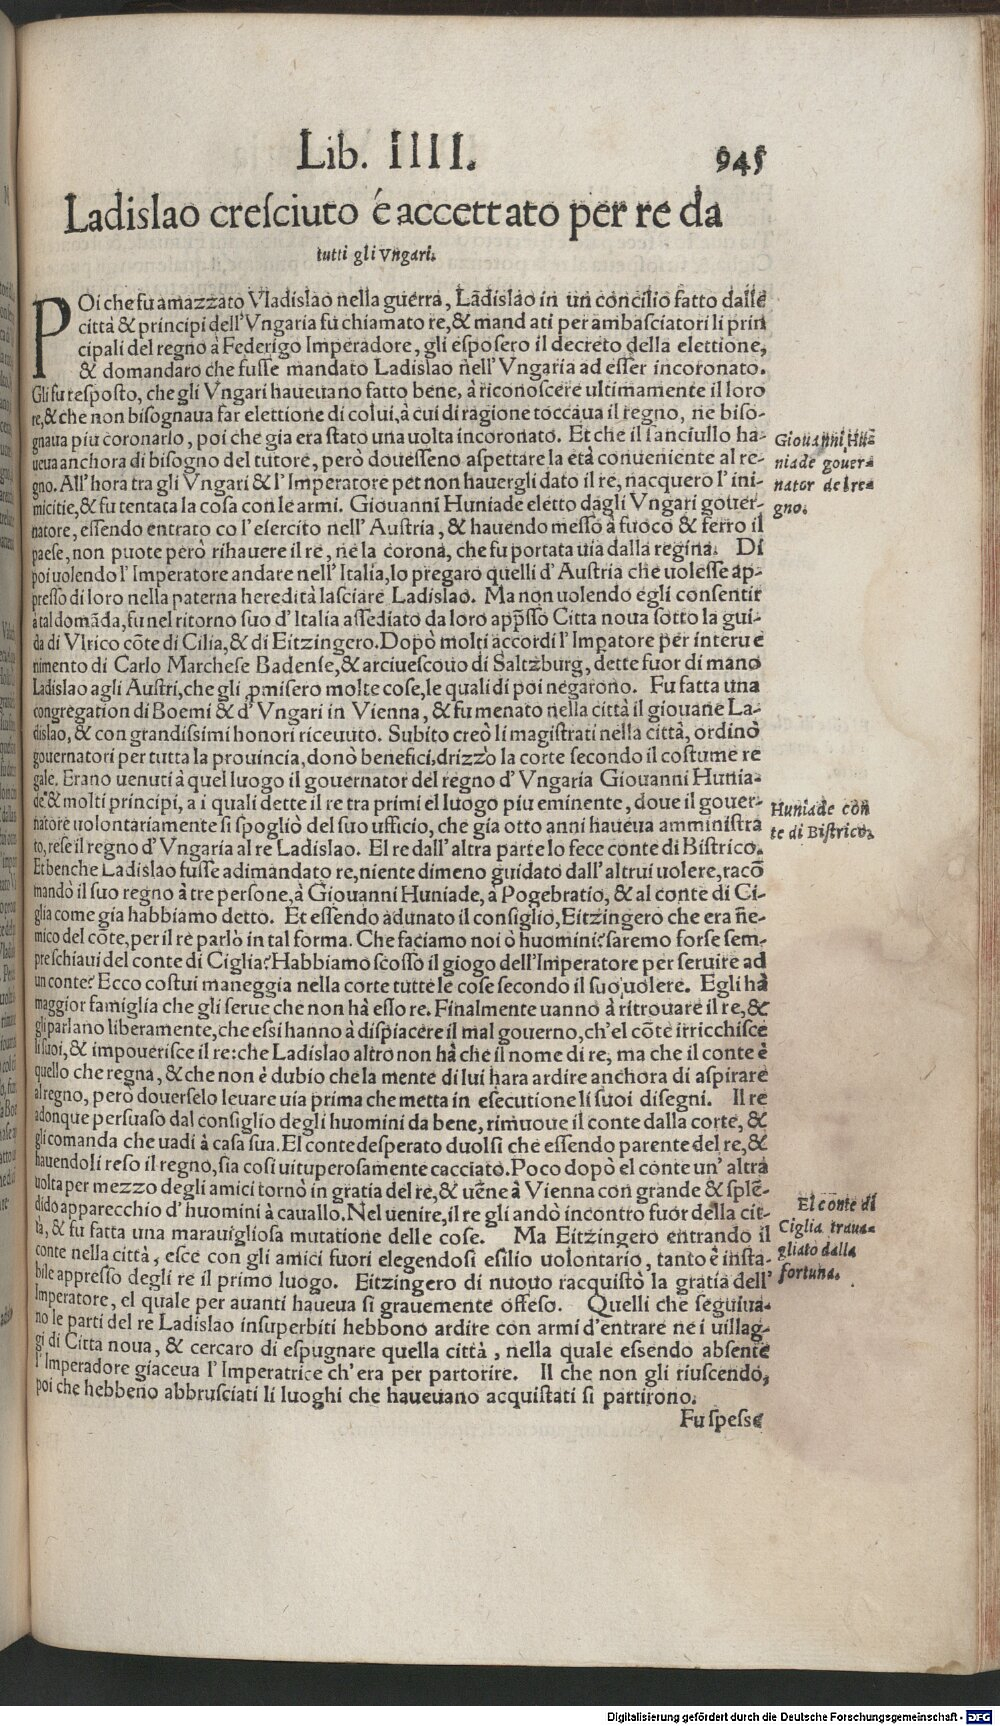 Lib. IIII.
945
Ladislao cresciuto é accettato per re da
tutti gli Vngari.
POi che fu amazzato Vladislao nella guerra, Ladislao in un concilio fatto dalle
città & principi dell'Vngaria fu chiamato re, & mandati per ambasciatori li prin
cipali del regno à Federigo Imperadore, gli esposero il decreto della elettione,
& domandaro che fusse mandato Ladislao nell'Vngaria ad esser incoronato.
Gli fu resposto, che gli Vngari haueuano fatto bene, à riconoscere ultimamente il loro
re, & che non bisognaua far elettione di colui, à cui di ragione toccaua il regno, ne biso-
gnaua piu coronarlo, poi che gia era stato una uolta incoronato. Et che il fanciullo ha-
ueua anchora di bisogno del tutore, però douesseno aspettare la età conueniente al re-
gno. All'hora tra gli Vngari & l'Imperatore pet non hauergli dato il re, nacquero l'ini-
micitie, & fu tentata la cosa con le armi. Giouanni Huniade eletto dagli Vngari gouer-
natore, essendo entrato co l'esercito nell'Austria, & hauendo messo à fuoco & ferro il
paese, non puote però rihauere il re, ne la corona, che fu portata uia dalla regina. Di
poi uolendo l'Imperatore andare nell'Italia, lo pregaro quelli d'Austria che uolesse ap-
presso di loro nella paterna heredità lasciare Ladislao. Ma non uolendo egli consentir
à tal domãda, fu nel ritorno suo d'Italia assediato da loro app̃sso Citta noua sotto la gui-
da di Vlrico cõte di Cilia, & di Eitzingero. Dopò molti accordi l'Impatore per interue
nimento di Carlo Marchese Badense, & arciuescouo di Saltzburg, dette fuor di mano
Ladislao agli Austri, che gli ꝓmisero molte cose, le quali di poi negarono. Fu fatta una
congregation di Boemi & d'Vngari in Vienna, & fu menato nella città il giouane La-
dislao, & con grandissimi honori riceuuto. Subito creò li magistrati nella città, ordinò
gouernatori per tutta la prouincia, donò benefici, drizzò la corte secondo il costume re
gale. Erano uenuti à quel luogo il gouernator del regno d'Vngaria Giouanni Hunia-
de & molti principi, a i quali dette il re tra primi el luogo piu eminente, doue il gouer-
natore uolontariamente si spogliò del suo ufficio, che gia otto anni haueua amministra
to, rese il regno d'Vngaria al re Ladislao. El re dall'altra parte lo fece conte di Bistrico.
Et benche Ladislao fusse adimandato re, niente dimeno guidato dall'altrui uolere, racõ
mandò il suo regno à tre persone, à Giouanni Huniade, à Pogebratio, & al conte di Ci-
glia come gia habbiamo detto. Et essendo adunato il consiglio, Eitzingero che era ne-
mico del cõte, per il re parlò in tal forma. Che faciamo noi ò huomini? saremo forse sem-
pre schiaui del conte di Ciglia? Habbiamo scosso il giogo dell'Imperatore per seruire ad
un conte? Ecco costui maneggia nella corte tutte le cose secondo il suo uolere. Egli hà
maggior famiglia che gli serue che non hà esso re. Finalmente uanno à ritrouare il re, &
gli parlano liberamente, che essi hanno à dispiacere il mal gouerno, ch'el cõte irricchisce
li suoi, & impouerisce il re: che Ladislao altro non hà che il nome di re, ma che il conte è
quello che regna, & che non è dubio che la mente di lui hara ardire anchora di aspirare
al regno, però douerselo leuare uia prima che metta in esecutione li suoi disegni. Il re
adonque persuaso dal consiglio degli huomini da bene, rimuoue il conte dalla corte, &
gli comanda che uadi à casa sua. El conte desperato duolsi che essendo parente del re, &
hauendoli reso il regno, sia cosi uituperosamente cacciato. Poco dopò el conte un'altra
uolta per mezzo degli amici tornò in gratia del re, & uẽne à Vienna con grande & splẽ-
dido apparecchio d'huomini à cauallo. Nel uenire, il re gli andò incontro fuor della cit-
tà, & fu fatta una marauigliosa mutatione delle cose. Ma Eitzingero entrando il
conte nella città, esce con gli amici fuori elegendosi esilio uolontario, tanto è insta-
bile appresso degli re il primo luogo. Eitzingero di nuouo racquistò la gratia dell'
Imperatore, el quale per auanti haueua si grauemente offeso. Quelli che seguiua-
no le parti del re Ladislao insuperbiti hebbono ardire con armi d'entrare ne i uillag-
gi di Citta noua, & cercaro di espugnare quella città, nella quale essendo absente
l'Imperadore giaceua l'Imperatrice ch'era per partorire. Il che non gli riuscendo,
poi che hebbeno abbrusciati li luoghi che haueuano acquistati si partirono.
Fu spesse
Giouanni Hu-
niade gouer-
nator del re-
gno.
Huniade con
te di Bistrico.
El conte di
Ciglia traua-
gliato dalla
fortuna.
Digitalisierung gefördert durch die Deutsche Forschungsgemeinschaft - DFG